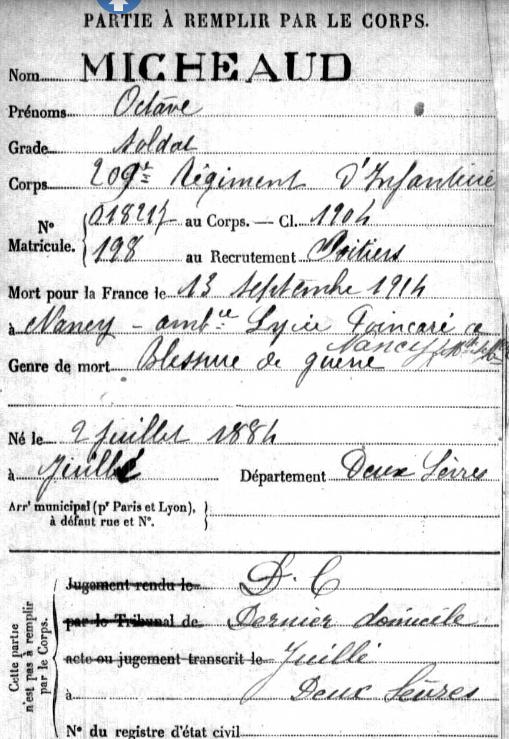 PARTIE À REMPLIR PAR LE CORPS.
Nom MICHEAUD
Prénoms Octave
Grade soldat
Corps 209e Régiment d'Infanterie
N° Matricule. 018217 au Corps. — Cl. 1904
198 au Recrutement Poitiers
Mort pour la France le 13 Septembre 1914
à Nancy - ambce Lycée Poincaré
Nancy
Genre de mort Blessure de guerre
Né le 2 juillet 1884
à Juillé Département Deux Sèvres
Arrt municipal (pr Paris et Lyon),
à défaut rue et N°.
Cette partie
n'est pas à remplir
par le Corps.
Jugement rendu le D. C
par le Tribunal de Dernier domicile
acte ou jugement transcrit le Juillé
à Deux Sèvres
N° du registre d'état civil